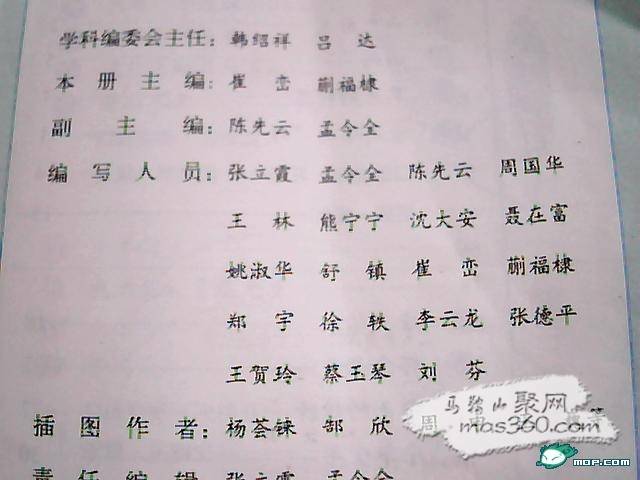 学科编委会主任：韩绍祥 吕达
本册主编：崔峦 蒯福棣
副主编：陈先云 孟令全
编写人员：张立霞 孟令全 陈先云 周国华
王林 熊宁宁 沈大安 聂在富
姚淑华 舒镇 崔峦 蒯福棣
郑宇 徐轶 李云龙 张德平
王贺玲 蔡玉琴 刘芬
插图作者：杨荟铼 郜欣 周
马鞍山聚网
mas360.com
责任编辑 张立霞 孟令全
MOP.COM